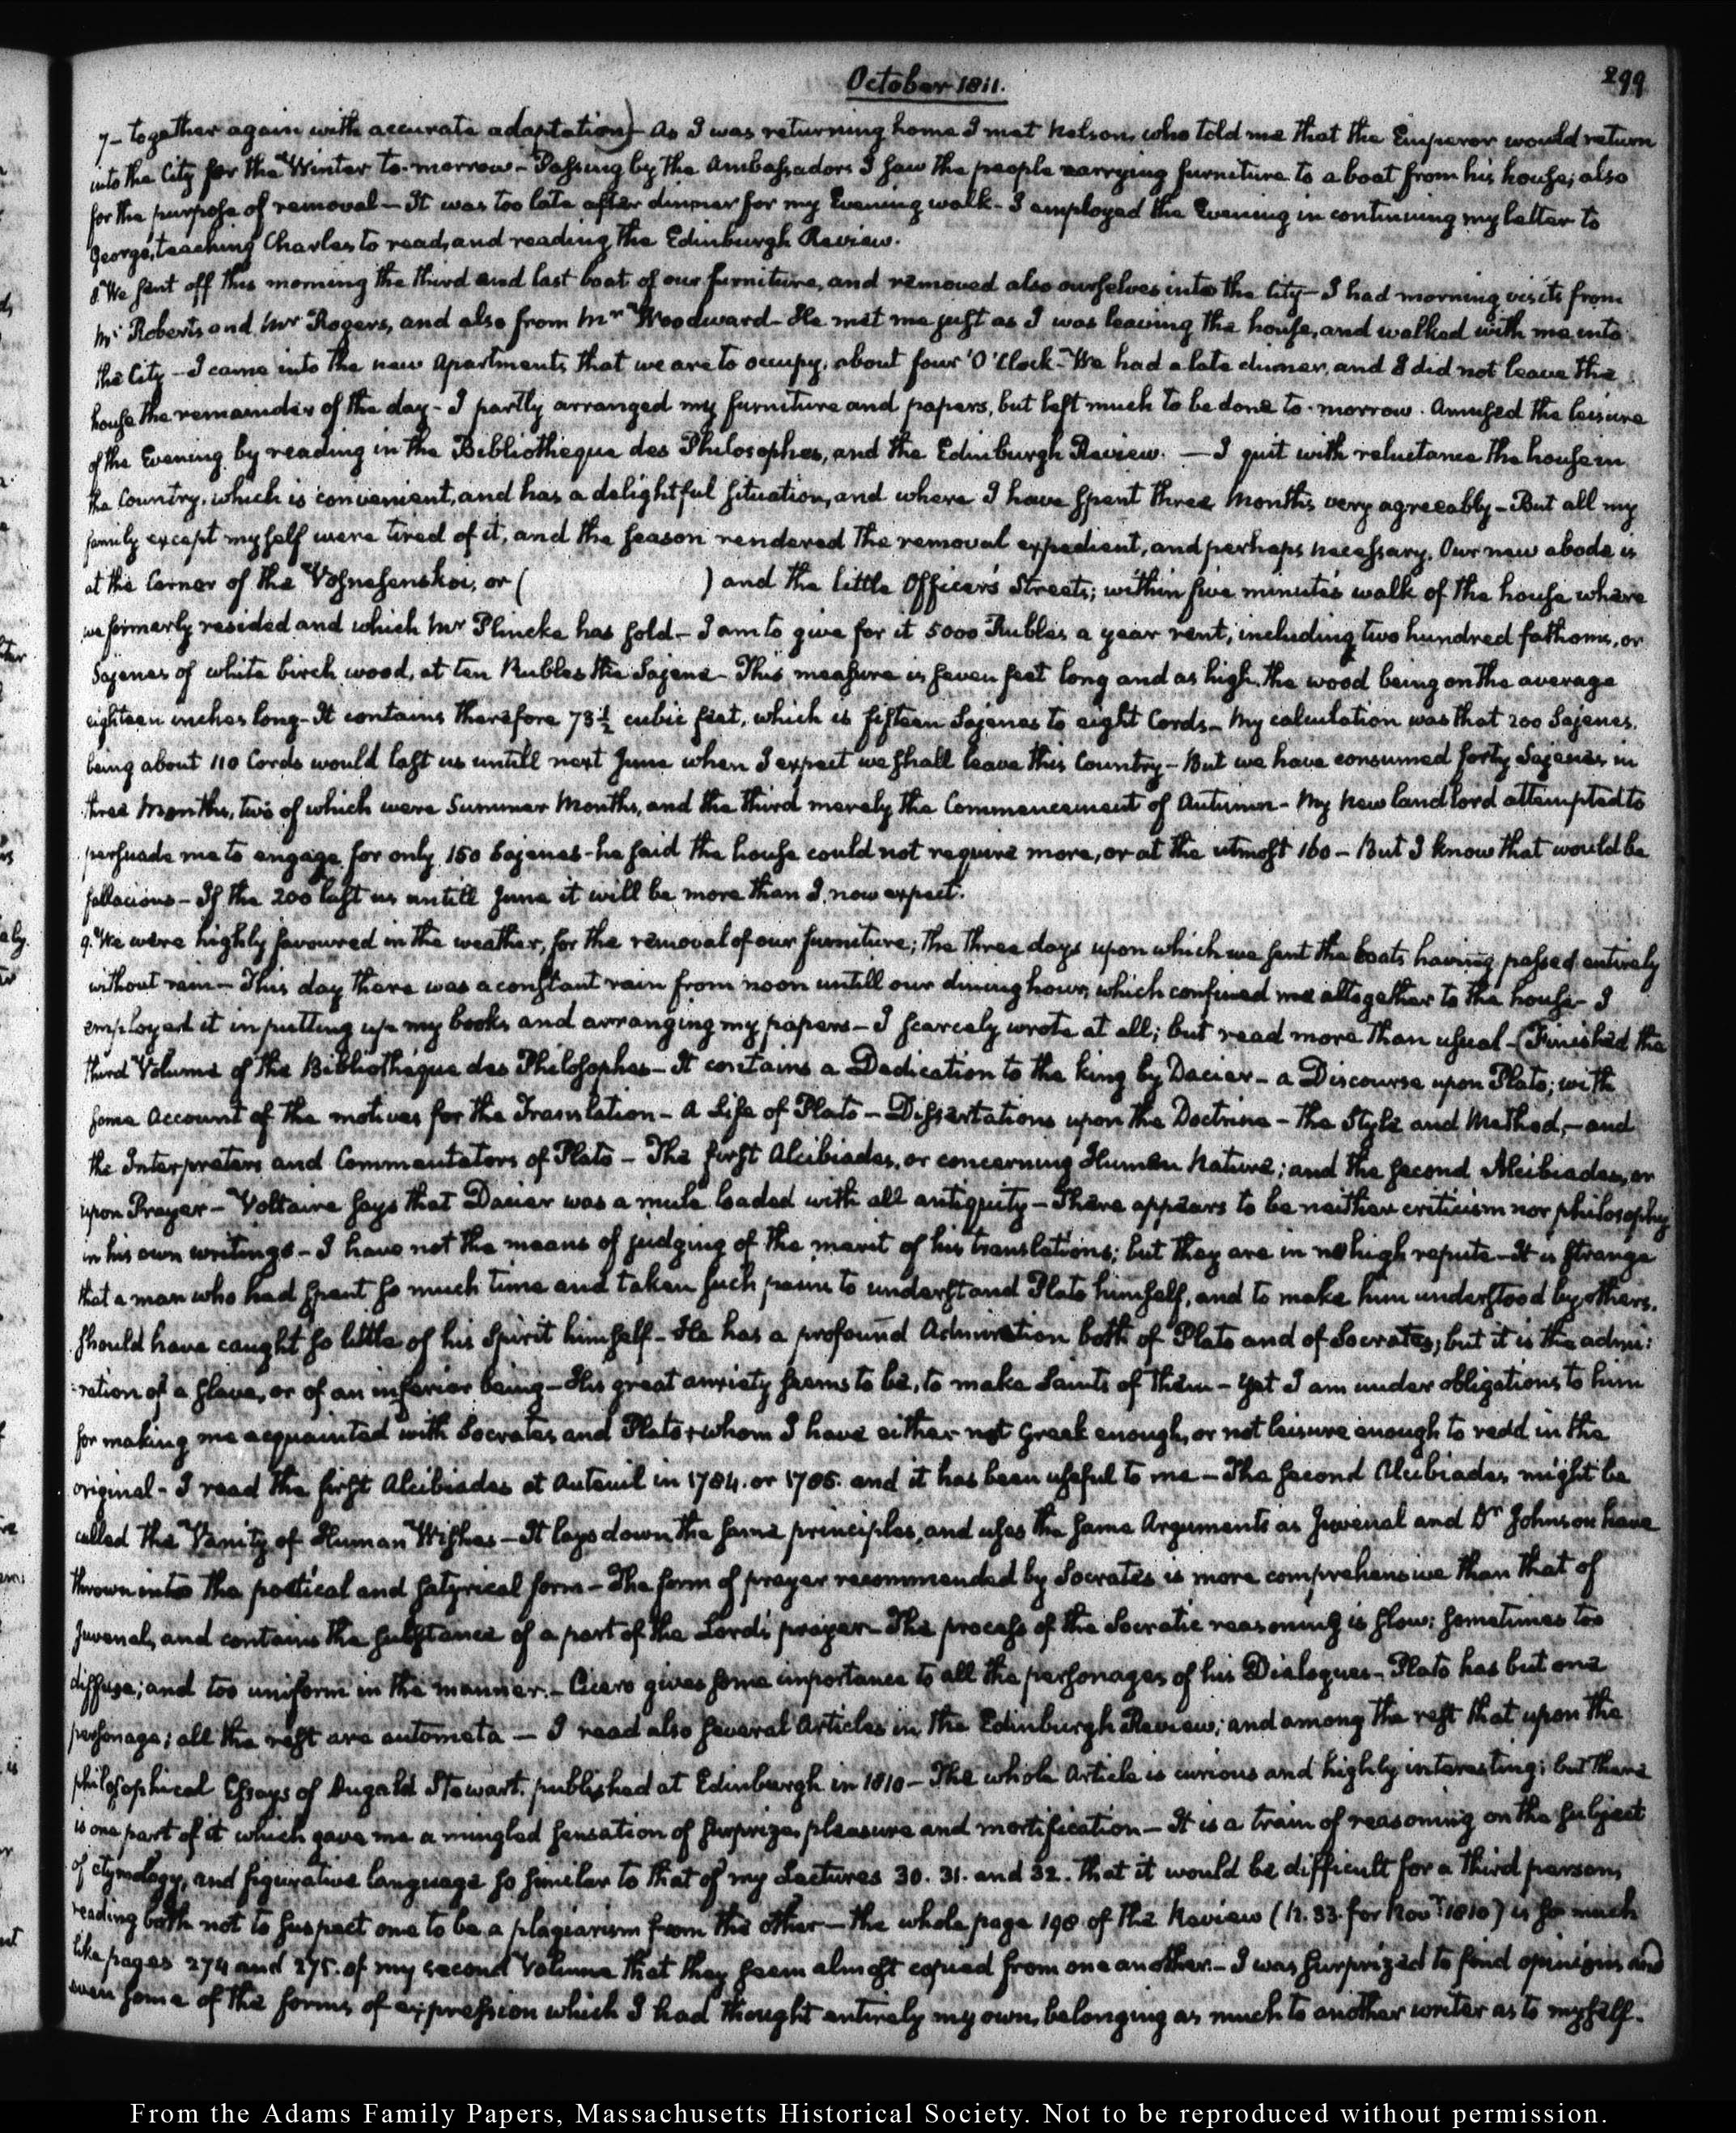 October 1811.
299
7– together again with accurate adaptation)– As I was returning home I met Nelson, who told me that the Emperor would return
into the City for the Winter to-morrow– Passing by the Ambassadors I saw the people carrying furniture to a boat from his house; also
for the purpose of removal– It was too late after dinner for my Evening walk– I employed the Evening in continuing my letter to
George, teaching Charles to read, and reading the Edinburgh Review.
8. We sent off this morning the third and last boat of our furniture, and removed also ourselves into the City– I had morning visits from
Mr Roberts and Mr Rogers, and also from Mr Woodward– He met me just as I was leaving the house, and walked with me into
the City– I came into the new Apartments that we are to occupy, about four 'O'Clock– We had a late dinner, and I did not leave the
house the remainder of the day– I partly arranged my furniture and papers, but left much to be done to-morrow. Amused the leisure
of the Evening by reading in the Bibliotheque des Philosophes, and the Edinburgh Review. — I quit with reluctance the house in
the Country, which is convenient, and has a delightful situation, and where I have spent three Months very agreeably– But all my
family except myself were tired of it, and the season rendered the removal expedient, and perhaps necessary. Our new abode is
at the Corner of the Vosnesenskoi, or ( ) and the little Officer's Streets; within five minute's walk of the house where
we formerly resided and which Mr Plincke has sold– I am to give for it 5000 Rubles a year rent, including two hundred fathoms, or
Sajenes of white birch wood, at ten Rubles the Sajene– This measure is seven feet long and as high, the wood being on the average
eighteen inches long– It contains therefore 73½ cubic feet, which is fifteen Sajenes to eight Cords– My calculation was that 200 Sajenes,
being about 110 Cords would last us untill next June when I expect we shall leave this Country– But we have consumed forty Sajenes in
three Months, two of which were Summer Months, and the third merely the Commencement of Autumn– My new landlord attempted to
persuade me to engage for only 150 Sajenes– he said the house could not require more, or at the utmost 160– But I know that would be
fallacious– If the 200 last us untill June it will be more than I now expect.
9. We were highly favoured in the weather, for the removal of our furniture; the three days upon which we sent the boats having passed entirely
without rain– This day there was a constant rain from noon untill our dining hour, which confined me altogether to the house– I
employed it in putting up my books and arranging my papers– I scarcely wrote at all; but read more than usual– (Finished the
third Volume of the Bibliothèque des Philosophes– It contains a Dedication to the king by Dacier– a Discourse upon Plato; with
some Account of the motives for the Translation– A Life of Plato– Dissertations upon the Doctrine– the Style and Method,– and
the Interpreters and Commentators of Plato– The first Alcibiades, or concerning Human Nature; and the second Alcibiades, or
upon Prayer– Voltaire says that Dacier was a mule loaded with all antiquity– There appears to be neither criticism nor philosophy
in his own writings– I have not the means of judging of the merit of his translations; but they are in no high repute– It is strange
that a man who had spent so much time and taken such pains to understand Plato himself, and to make him understood by others,
should have caught so little of his Spirit himself– He has a profound Admiration both of Plato and of Socrates; but it is the admi:
:ration of a slave, or of an inferior being– His great anxiety seems to be, to make Saints of them– Yet I am under obligations to him
for making me acquainted with Socrates and Plato, whom I have either not Greek enough, or not leisure enough to read in the
original– I read the first Alcibiades at Auteuil in 1784. or 1785. and it has been useful to me– The second Alcibiades might be
called the Vanity of Human Wishes– It lays down the same principles, and uses the same Arguments as Juvenal and Dr Johnson have
thrown into the poetical and satyrical form– The form of prayer recommended by Socrates is more comprehensive than that of
Juvenal, and contains the substance of a part of the Lord's prayer– The process of the Socratic reasoning is slow; sometimes too
diffuse; and too uniform in the manner.– Cicero gives some importance to all the personages of his Dialogues– Plato has but one
personage; all the rest are automata— I read also several Articles in the Edinburgh Review; and among the rest that upon the
philosophical Essays of Dugald Stewart, published at Edinburgh in 1810– The whole Article is curious and highly interesting; but there
is one part of it which gave me a mingled sensation of surprize, pleasure and mortification– It is a train of reasoning on the subject
of etymology, and figurative language so similar to that of my Lectures 30. 31. and 32. that it would be difficult for a third person,
reading both not to suspect one to be a plagiarism from the other– the whole page 198 of the Review (N. 33. for Novr 1810) is so much
like pages 274 and 275. of my second Volume that they seem almost copied from one another– I was surprized to find opinions and
even some of the forms of expression which I had thought entirely my own, belonging as much to another writer as to myself.
From the Adams Family Papers, Massachusetts Historical Society. Not to be reproduced without permission.